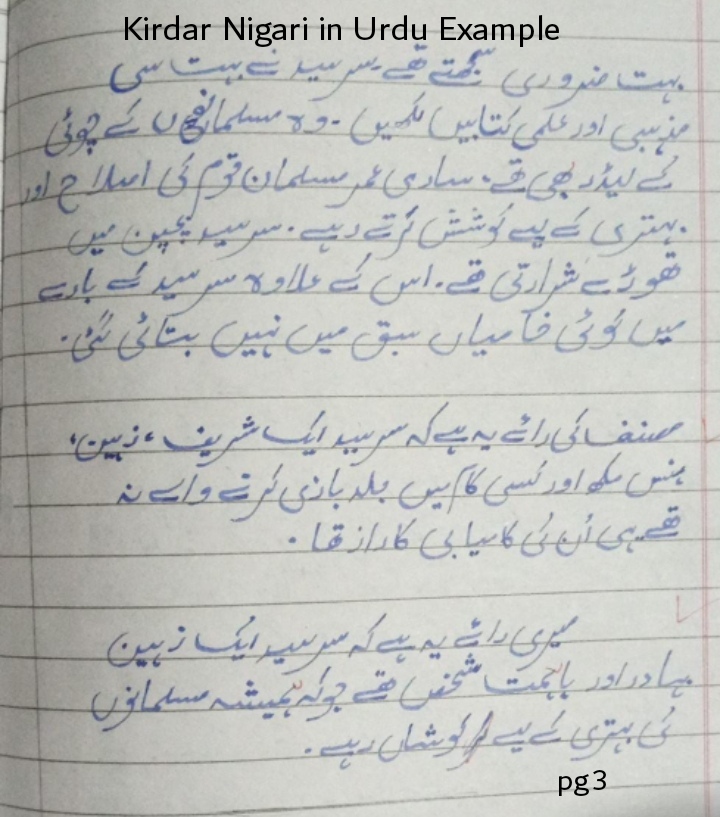 Kirdar Nigari in Urdu Example
بہت ضروری سمجھتے تھے۔ سرسید نے بہت سی
مذہبی اور علمی کتابیں لکھیں۔ وہ مسلمانوں کے چوٹی
کے لیڈر بھی تھے۔ ساری عمر مسلمان قوم کی اصلاح اور
بہتری کے لیے کوشش کرتے رہے۔ سرسید بچپن میں
تھوڑے شرارتی تھے۔ اس کے علاوہ سرسید کے بارے
میں کوئی خامیاں سبق میں نہیں بتائی گئی۔
مصنف کی رائے یہ ہے کہ سرسید ایک شریف، ذہین،
ہنس مکھ اور کسی کام میں جلد بازی کرنے والے نہ
تھے یہی اُن کی کامیابی کا راز تھا۔
میری رائے یہ ہے کہ سرسید ایک ذہین
بہادر اور باہمت شخص تھے جو کہ ہمیشہ مسلمانوں
کی بہتری کے لیے کوشاں رہے۔
pg3